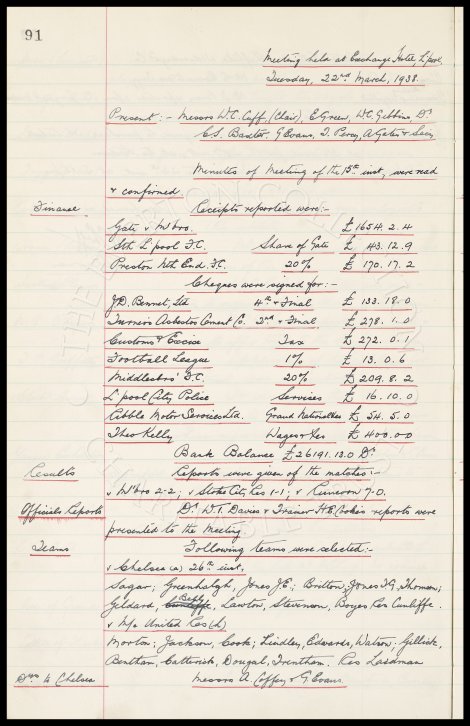 91
Meeting held at Exchange Hotel, L'pool,
Tuesday, 22nd March, 1938.
Present :- Messrs W.C. Cuff, (Chair), E. Green, W.C. Gibbins, Dr
C.S. Baxter, G. Evans, T. Percy, A. Gates & Secy.
Minutes of Meeting of the 15th inst, were read
& confirmed
Finance Receipts reported were:-
Gate v M'bro. £ 1654. 2. 4
Sth L'pool F.C. Share of Gate £ 43. 12. 9
Preston Nth End F.C. 20% £ 170. 17. 2
Cheques were signed for:-
J.D. Bennet, Ltd 4th & Final £ 133. 18. 0
Turners Asbestos Cement Co. 2nd & Final £ 278. 1. 0
Customs & Excise Tax £ 272. 0. 1
Football League 1% £ 13. 0. 6
Middlesbro' F.C. 20% £ 209. 8. 2
L'pool City Police Services £ 16. 10. 0
Ribble Motor Services Ltd. Grand National £ 54. 5. 0
Theo Kelly Wages & £ 400. 0 0
Bank Balance £ 26191. 13. 0 Dr
Results Reports were given of the matches:-
v M'bro 2-2; v Stoke City, Res 1-1; v Runcorn 7-0.
Officials Reports Dr. W.T. Davies & Trainer H.E. Cooke's reports were
presented to the Meeting
Teams Following teams were selected:-
v Chelsea (a) 26th inst,
Sagar; Greenhalgh, Jones J.E; Britton, Jones T.G, Thomson;
Geldard, Cunliffe, Lawton, Stevenson, Boyes Res Cunliffe.
v M/c United Res (h)
Morton; Jackson, Cook; Lindley, Edwards, Watson; Gillick,
Bentham, Catterick, Dougal, Trentham. Res Laidman
Drs to Chelsea Messrs A. Coffey & G. Evans.